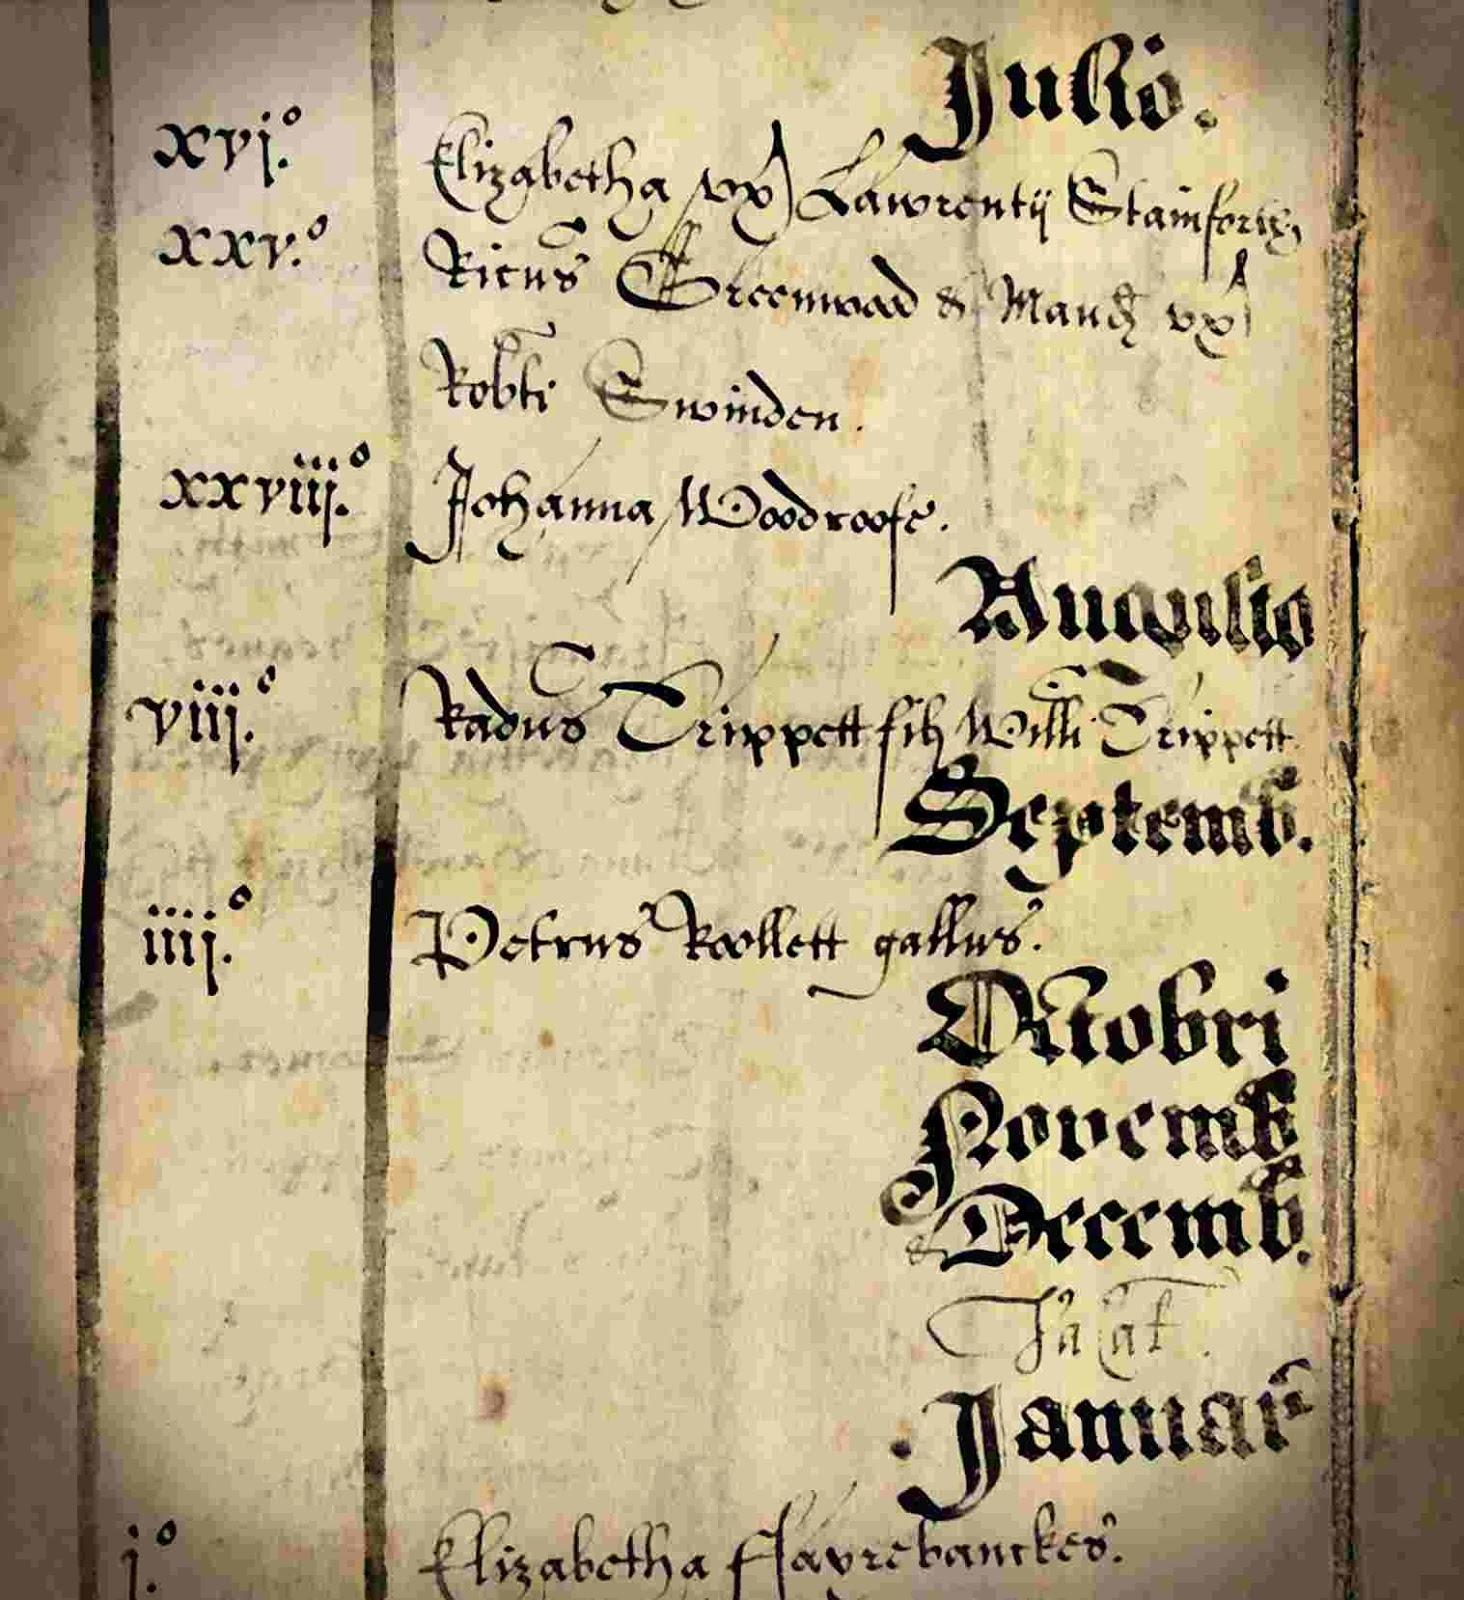 Julio.
xvj.º Elizabetha vx) Lawrentij Stainforth
xxv.º Ricus Greenwood & Mauds vx)
Robti Swinden.
xxviij.º Johanna Woodroofe.
Augusto
viij.º Radus Trippett fil Willi Trippett
Septemb.
iiij.º Petrus Roollett gallus.
Octobri
Novemb
& Decemb.
Januar
j.º Elizabetha ffayrebanckes.